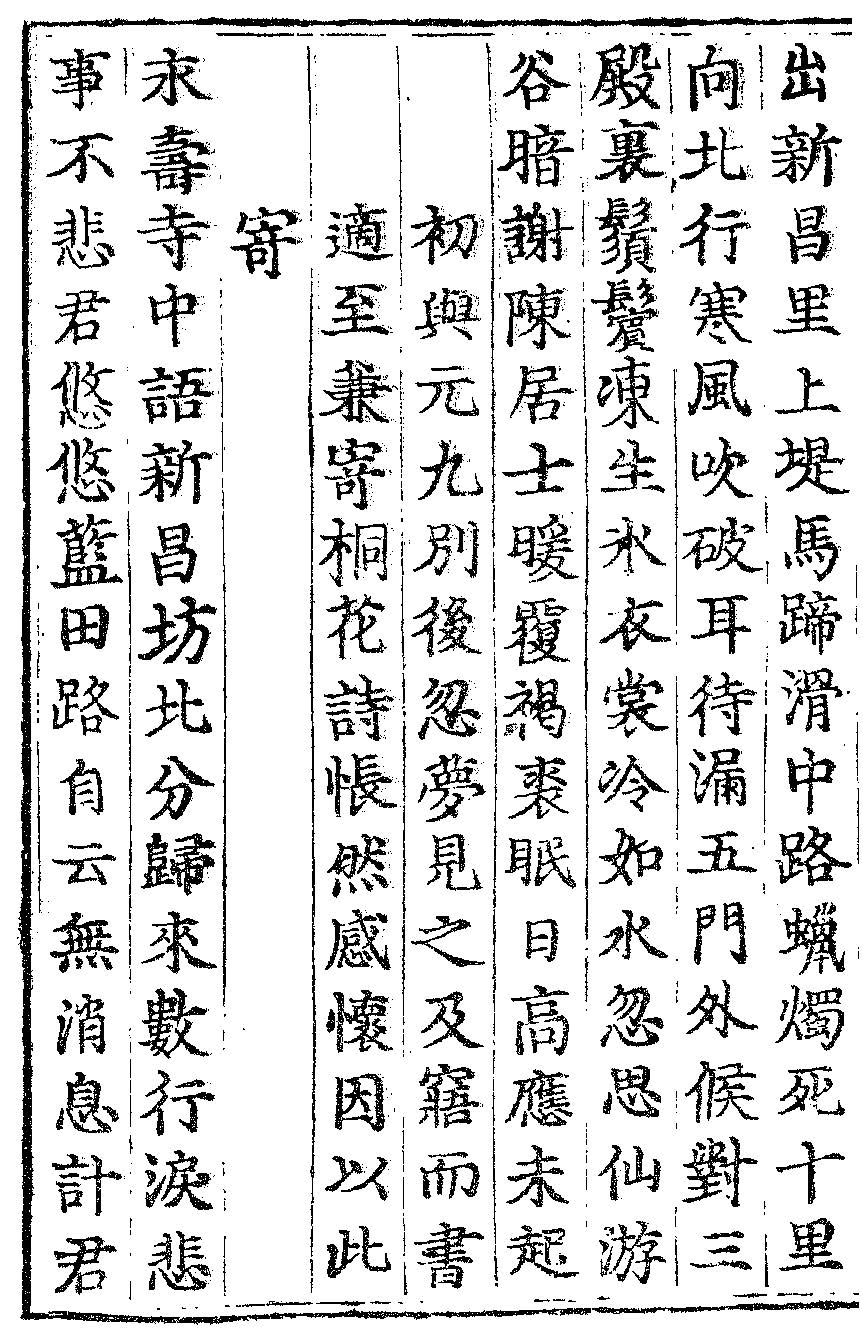 出新昌里上堤馬蹄滑中路蠟燭死十里
向北行寒風吹破耳待漏五門外候對三
殿裏鬚鬢凍生氷衣裳冷如水忽思仙游
谷暗謝陳居士暖覆褐裘眠日高應未起
初與元九別後忽夢見之及寤而書
適至兼寄桐花詩悵然感懷因以此
寄
永壽寺中語新昌坊北分歸來數行淚悲
事不悲君悠悠藍田路自云無消息計君